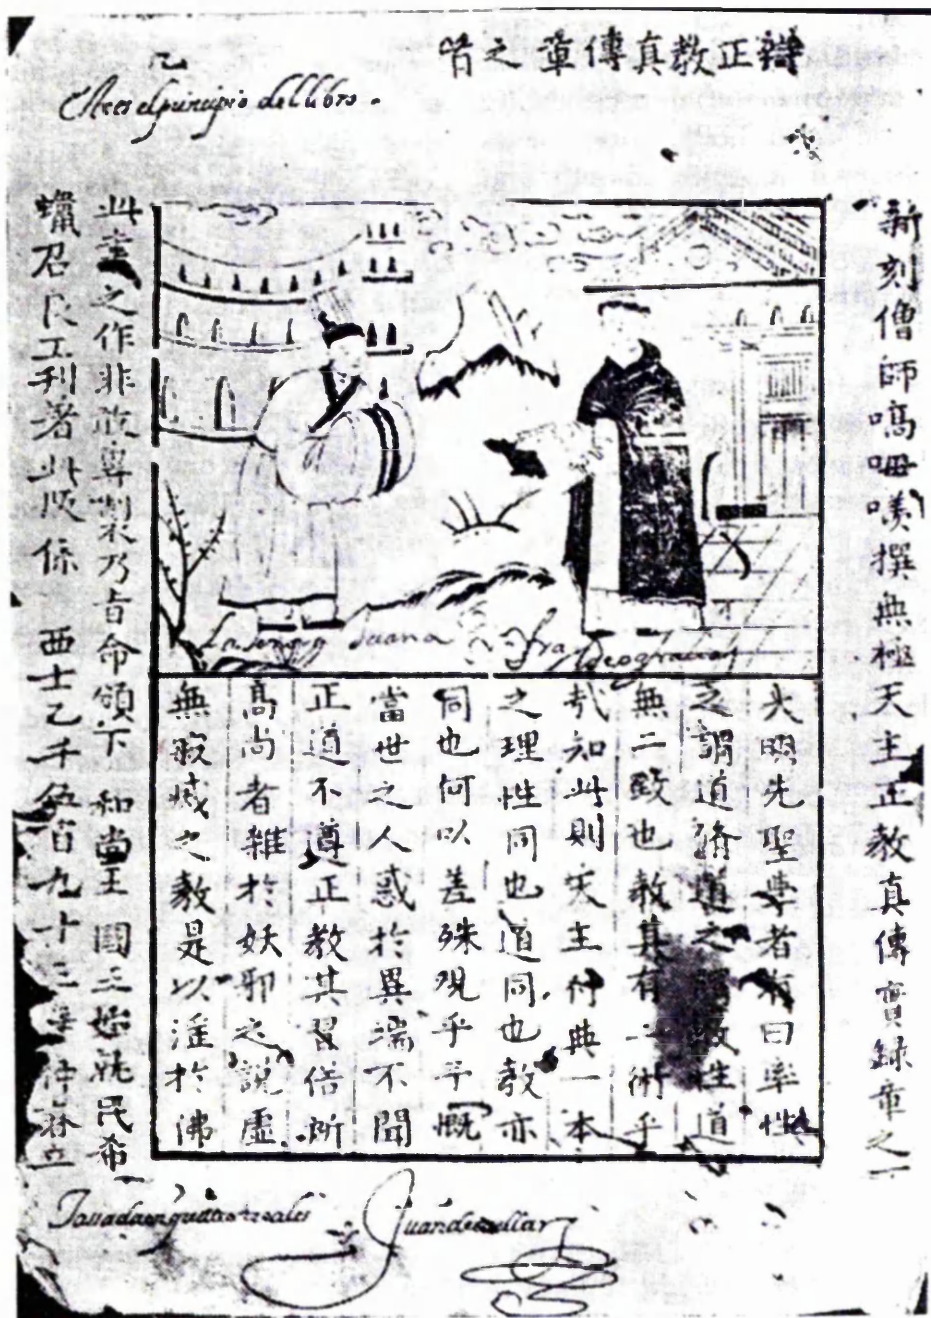 辯正教真傳章之首
el principio del libro.
新刻僧師嗃呣羨撰無極天主正教真傳實錄章之一
Juana
夫 先聖尊者有曰率性
之謂道脩道之謂教性道
無二致也教其有二術乎
哉知此則天主付典一本
之理性同也道同也教亦
同也何以差殊观乎予慨
當世之人惑於異端不聞
正道不遵正教其習俗所
高尚者雜於妖邪之說虛
無寂烕之教是以淫於佛
此書之作非敢專制乃旨命頒下和尚王國王始就民希
蠟召良工刊著此版係 西士乙千伍百九十三年仲春立
Tassada en quatro reales Juan de cuellar